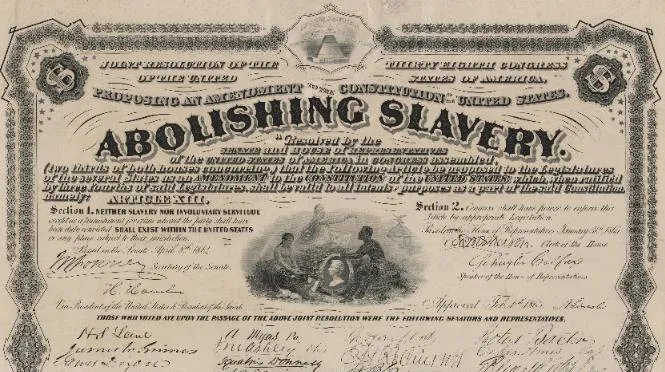 JOINT RESOLUTION OF THE THIRTY EIGHTH CONGRESS
OF THE UNITED STATES OF AMERICA,
PROPOSING AN AMENDMENT TO THE CONSTITUTION OF THE UNITED STATES.
ABOLISHING SLAVERY.
"Resolved by the
SENATE AND HOUSE OF REPRESENTATIVES
of the UNITED STATES OF AMERICA IN CONGRESS assembled,
(two thirds of both houses concurring,) that the following Article be proposed to the Legislatures
of the several States as an AMENDMENT to the CONSTITUTION of the UNITED STATES, which when ratified
by three fourths of said Legislatures, shall be valid to all intents & purposes as a part of the said Constitution,
namely: ARTICLE XIII.
Section 1. NEITHER SLAVERY NOR INVOLUNTARY SERVITUDE
except as a punishment for crime whereof the party shall have
been duly convicted SHALL EXIST WITHIN THE UNITED STATES
or any place subject to their jurisdiction.
Passed in the Senate April 8th 1864.
Secretary of the Senate.
H Hamlin
Vice President of the United States & President of the Senate
Section 2. Congress shall have power to enforce this
Article by appropriate legislation.
House of Representatives January 31st 1865
Clerk of the House
Schuyler Colfax
Speaker of the House of Representatives
Approved Feb. 1st 1865. A Lincoln
THOSE WHO VOTED AYE UPON THE PASSAGE OF THE ABOVE JOINT RESOLUTION WERE THE FOLLOWING SENATORS AND REPRESENTATIVES.
H S Lane
James W Grimes
Ignatius Donnelly